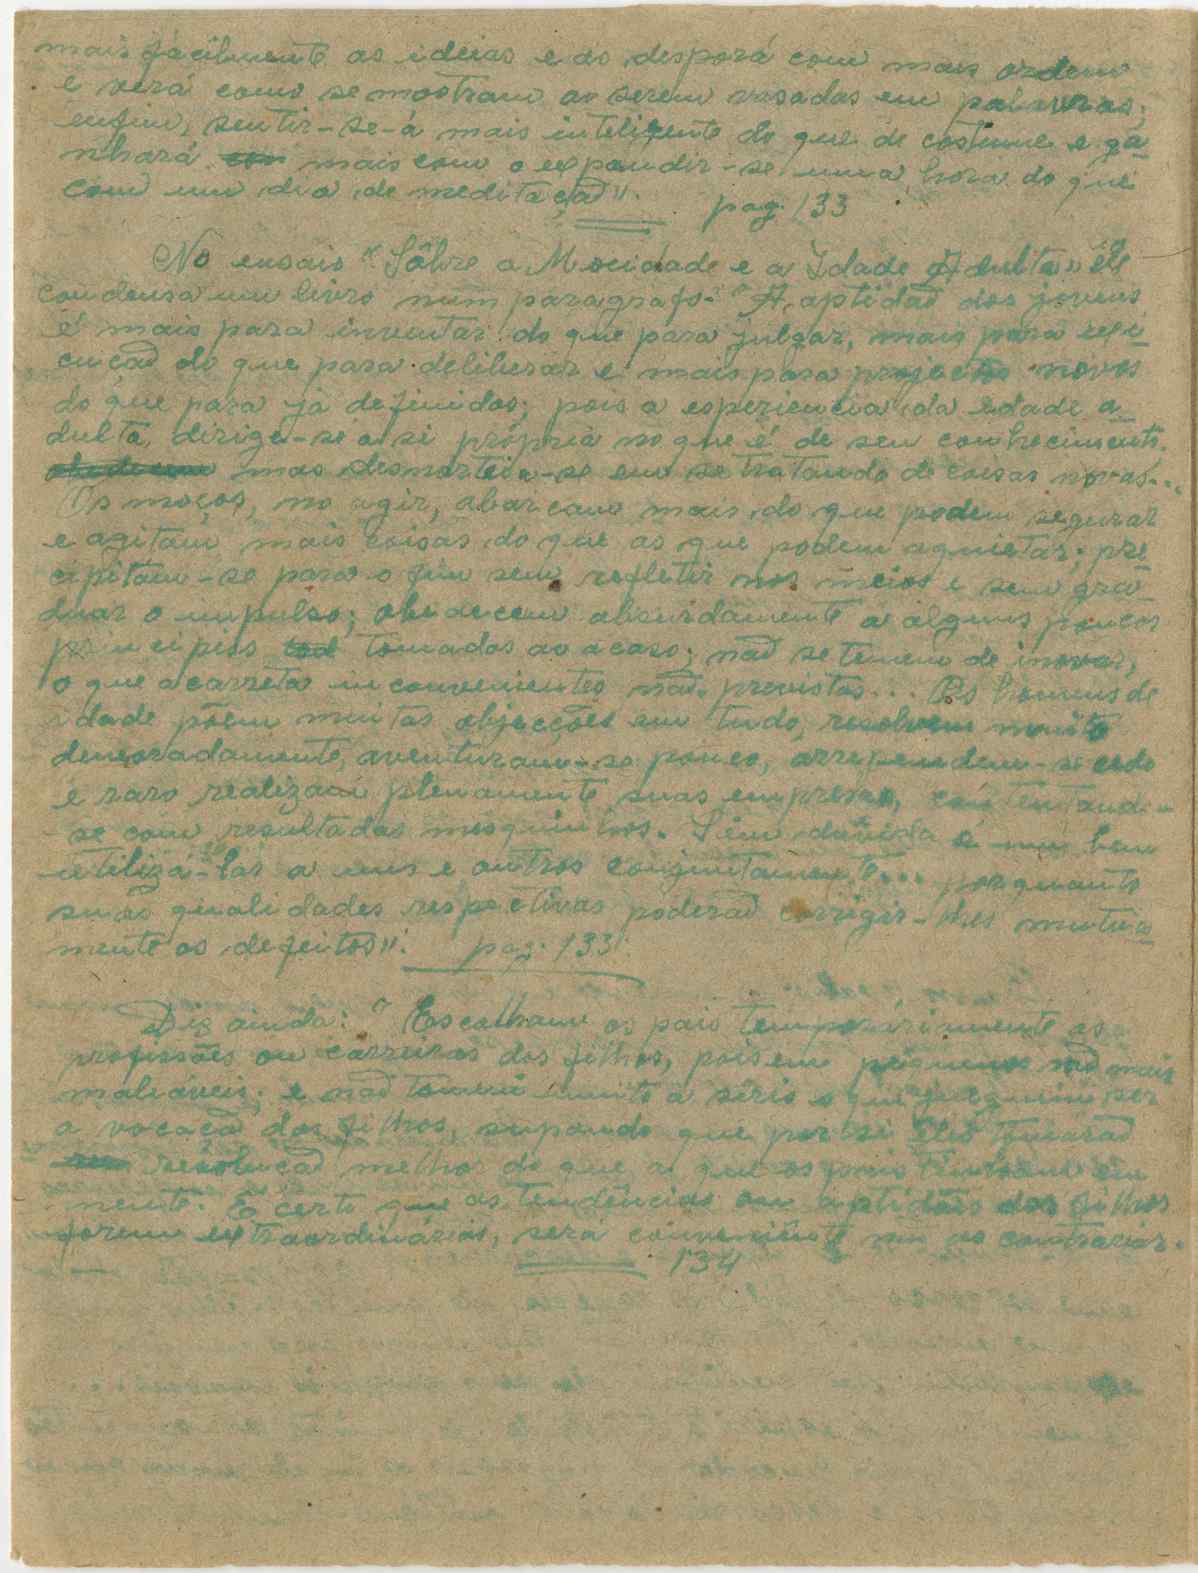 mais fácilmente as ideias e as disporá com mais ordem
e verá como se mostram ao serem vasadas em palavras;
enfim, sentir-se-á mais inteligente do que de costume e ga-
nhará mais com o expandir-se uma hora do que
com um dia de meditação".
pag. 133
No ensaio "Sôbre a Mocidade e a Idade Adulta" êle
condensa um livro num paragrafo. "A aptidão dos jovens
é mais para inventar do que para julgar, mais para exe-
cução do que para deliberar e mais para projectos novos
do que para já definidos; pois a experiencia da idade a-
dulta, dirige-se a si própria no que é de seu conhecimento
mas desnorteia-se em se tratando de coisas novas...
Os moços, no agir, abarcam mais do que podem segurar
e agitam mais coisas do que as que podem aquietar; pre-
cipitam-se para o fim sem refletir nos meios e sem gra-
duar o impulso; obedecem absurdamente a alguns poucos
principios tomados ao acaso; não se temem de inovar,
o que acarreta inconvenientes não previstos... Os homens de
idade põem muitas objecções em tudo, resolvem muito
demoradamente, aventuram-se pouco, arrependem-se cedo
e raro realizam plenamente suas empresas, contentando-
se com resultados mesquinhos. Sem dúvida é um bem
utilizá-los a uns e outros conjuntamente... porquanto
suas qualidades respectivas poderão corrigir-lhes mutua-
mente os defeitos".
pag. 133
Diz ainda: "Escolham os pais temporariamente as
profissões ou carreiras dos filhos, pois em pequenos são mais
maliáveis; e não tomem muito a sério o que julguem ser
a vocação dos filhos, supondo que por si êles tomarão
resolução melhor do que a que os pais tenham em
mente. É certo que as tendências ou aptidões dos filhos
forem extraordinárias, será conveniente não as contrariar.
134